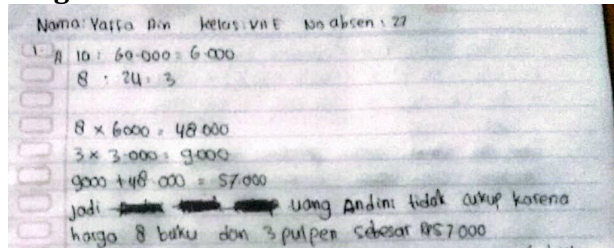 Nama: Yaffa Ain kelas: VIII E No absen: 27
1. A 10 : 60.000 = 6.000
8 : 24 = 3
8 x 6000 = 48.000
3 x 3.000 = 9.000
9000 + 48.000 = 57.000
Jadi uang Andini tidak cukup karena
harga 8 buku dan 3 pulpen sebesar Rp57000